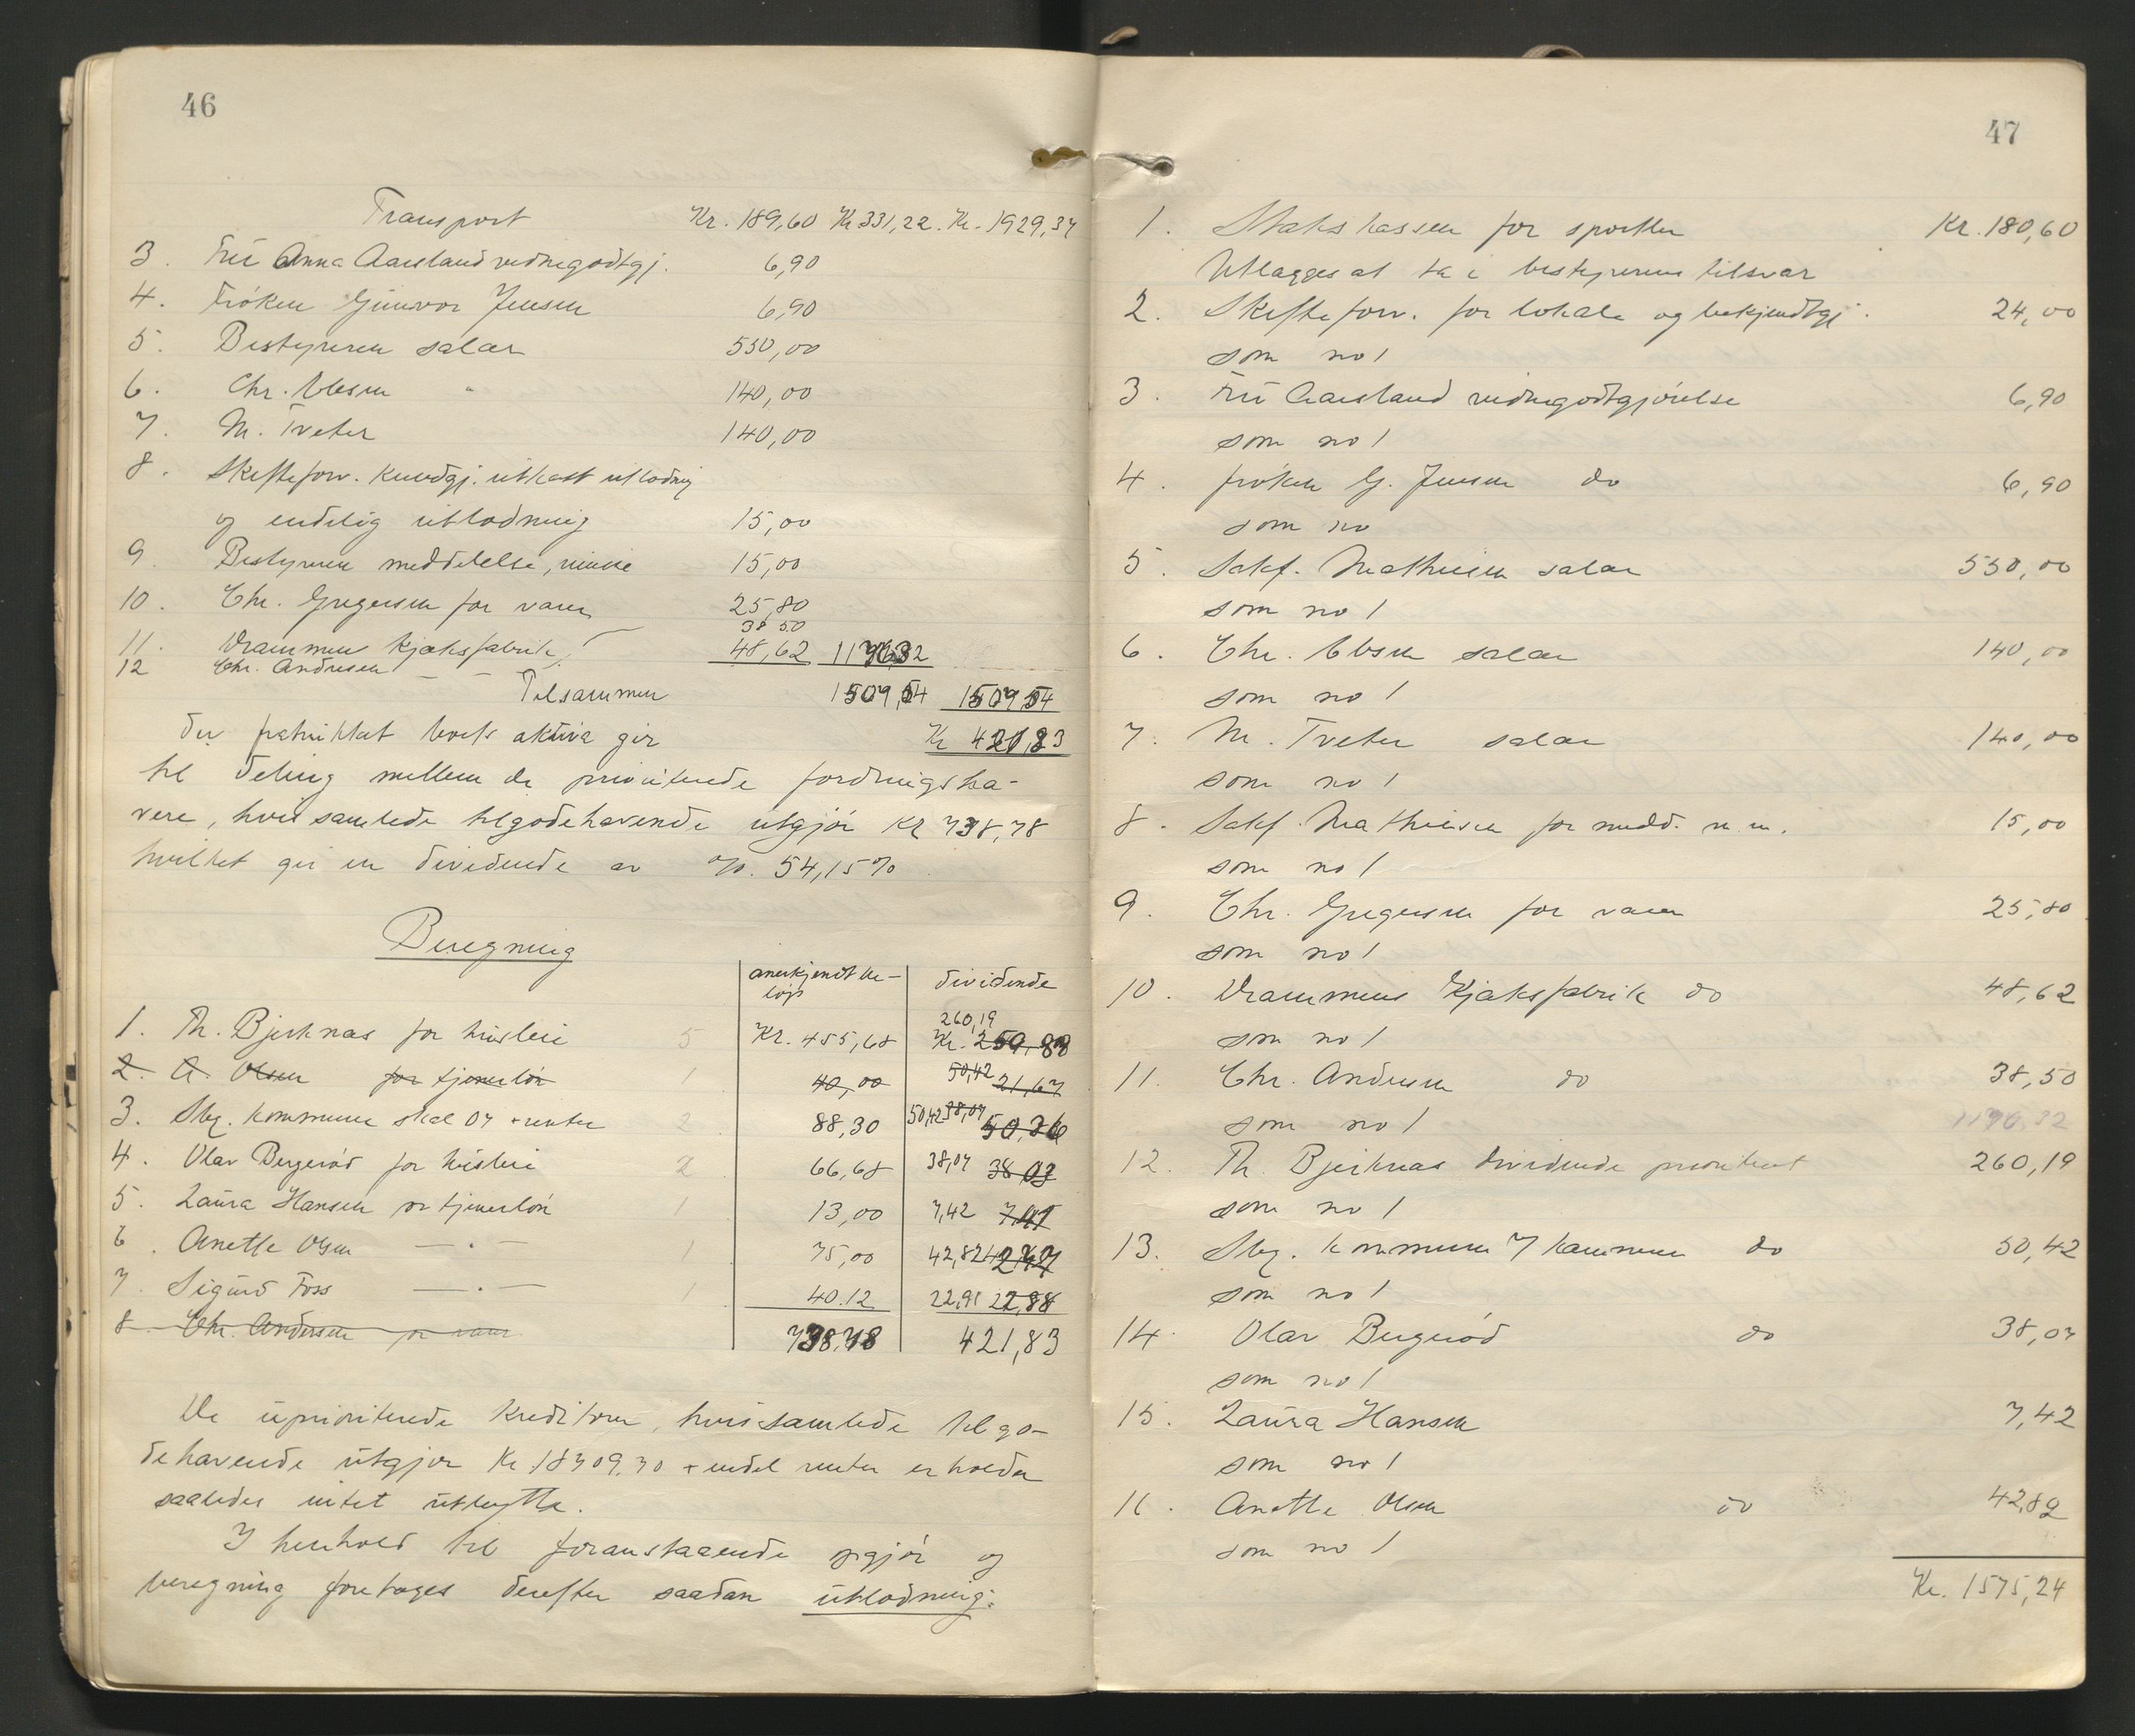 46
Transport Kr. 189,60 Kr 331,22. Kr. 1929,37
3. Frü Anna Aarsland vidnegodtgj. 6,90
4. Frøken Günvor Jensen 6,90
5. Bestyreren salær 550,00
6. Chr. Ebsen " 140,00
7. M. Tveter 140,00
8. Skifteforv. Kundgj. ütkast utlodnig
og endelig ütlodning 15,00
9. Bestyreren meddelelse, 15,00
10. Chr. Gregersen for varer 25,80
38 50
11. Drammens Kjæksfabrik 48,62 1176,32
12 Chr. Andresen — —
Tilsammen 1507,54 1507,54
Der fratrukket boets aktiva gir Kr 421,83
til deling mellem de prioriterede fordringsha-
vere, hvis samlede tilgodehavende ütgjør Kr 738,78
hvilket gir en dividende av %. 54,15%
Beregning
anerkjendt be-
løp dividende
260,19
1. Th. Bjerknæs for hüsleie 5 Kr. 455,68 Kr. 259,88
2. A. Olsen for tjenerløn 1 40,00 50,42 21,67
3. Sbg. kommune skat 07 + renter 2 88,30 50,42 38,07 50,36
4. Olav Bergerød for hüsleie 2 66,68 38,07 38,03
5. Laüra Hansen for tjenerløn 1 13,00 7,42 7,41
6. Anette Olsen — . — 1 75,00 42,82 42,77
7. Sigürd Foss — . — 1 40.12 22,91 22,88
8. Chr. Andersen for varer
738,78 421,83
De üprioriterede Kreditorer, hvis samlede tilgo-
dehavende ütgjør Kr 18309.30 + endel renter erholder
saaledes intet ütbytte.
I henhold til foranstaaende opgjør og
beregning foretages derefter saadan ütlodning:
47
1. Statskassen for sportler Kr. 180,60
Utlægges at ta i bestyrerens tilsvar
2. Skifteforv. for lokale og bekjendtgj. 24,00
som no 1
3. Frü Aarsland vidnegodtgjørelse 6,90
som no 1
4. frøken G. Jensen do 6,90
som no
5. Sakf. Mathiesen salær 550,00
som no 1
6. Chr. Ebsen salær 140,00
som no 1
7. M. Tveter salær 140,00
som no 1
8. Sakf. Mathiesen for medd. m. m. 15,00
som no 1
9. Chr. Gregersen for varer 25,80
som no 1
10. Drammens Kjæksfabrik do 48,62
som no 1
11. Chr. Andresen do 38,50
som no 1 1176,32
12. Th. Bjerknæs dividende prioritert 260,19
som no 1
13. Sbg. kommune v/ kæmneren do 50,42
som no 1
14. Olav Bergerød do 38,07
som no 1
15. Laüra Hansen 7,42
som no 1
16. Anette Olsen do 42,82
som no 1
Kr. 1575,24